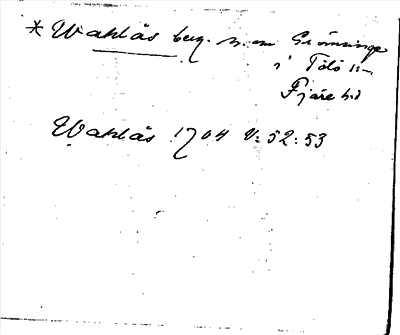 * Wahlås berg n. om Grönninge
i Tölö sn
Fjäre hd
Wahlås 1704 V: 52: 53